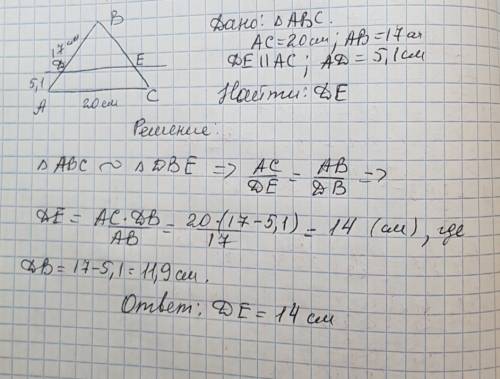 B
17 см
D
E
5,1
A
20 см
C
Дано: △ABC.
AC=20 см; AB=17 см
DE ∥ AC; AD = 5,1 см
Найти: DE
Решение:
△ABC ~ △DBE => AC/DE = AB/DB =>
DE = AC·DB/AB = 20·(17-5,1)/17 = 14 (см), где
DB = 17-5,1 = 11,9 см.
Ответ: DE = 14 см